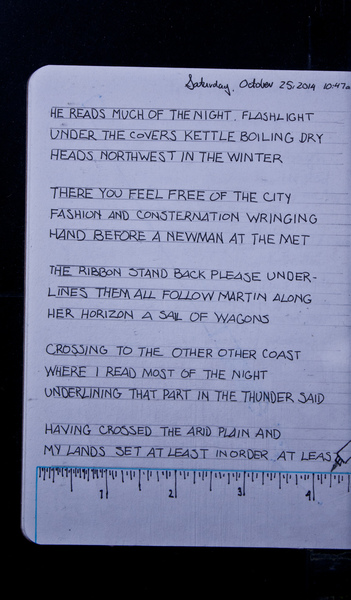 Saturday, October 25, 2014 10:47a
HE READS MUCH OF THE NIGHT, FLASHLIGHT
UNDER THE COVERS KETTLE BOILING DRY
HEADS NORTHWEST IN THE WINTER
THERE YOU FEEL FREE OF THE CITY
FASHION AND CONSTERNATION WRINGING
HAND BEFORE A NEWMAN AT THE MET
THE RIBBON STAND BACK PLEASE UNDER-
LINES THEM ALL FOLLOW MARTIN ALONG
HER HORIZON A SAIL OF WAGONS
CROSSING TO THE OTHER OTHER COAST
WHERE I READ MOST OF THE NIGHT
UNDERLINING THAT PART IN THE THUNDER SAID
HAVING CROSSED THE ARID PLAIN AND
MY LANDS SET AT LEAST IN ORDER AT LEAS
1 2 3 4